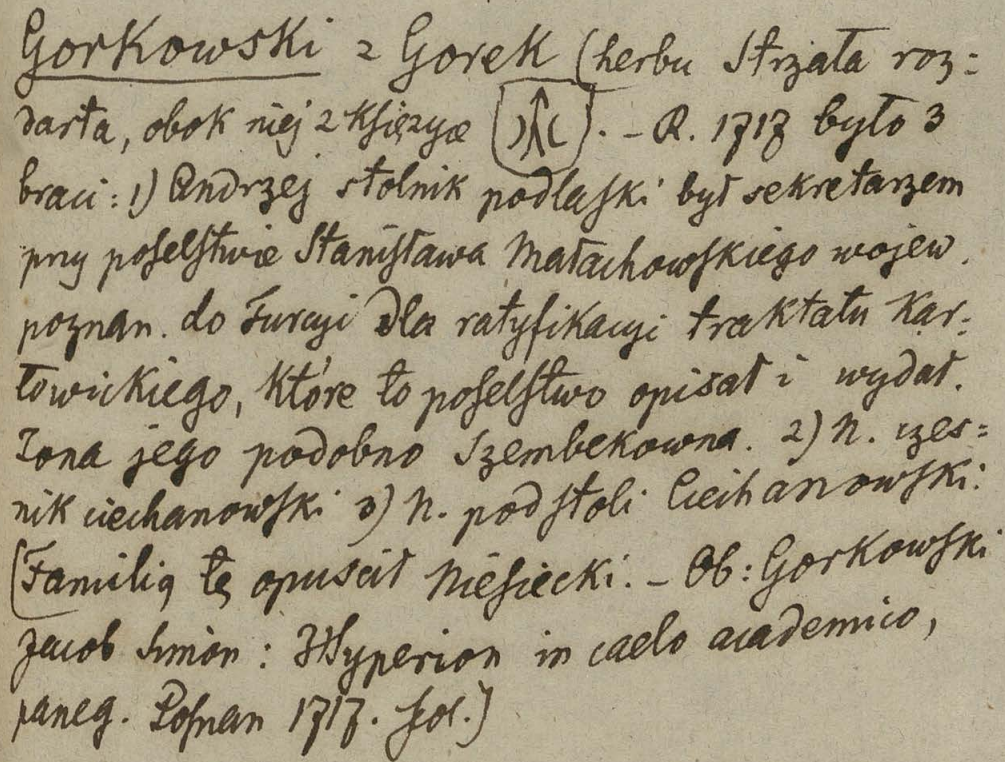 Gorkowski z Gorek (herbu Strzała roz=
darta, obok niej 2 Księżyce. – R. 1717 było 3
braci: 1) Andrzej stolnik podlaſki był sekretarzem
przy poſelſtwie Staniſława Małachowſkiego wojew.
poznan. do Turcyi dla ratyfikacyi traktatu Kar=
łowickiego, które to poſelſtwo opisał i wydał.
Żona jego podobno Szembekowna. 2) N. czes=
nik ciechanowſki 3) N. podſtoli Ciechanowſki.
(Familią tę opuscił Nieſiecki. – Ob: Gorkowſki
Jacob Simon: Hyperion in caelo academico,
paneg. Poſnan 1717. fol.)